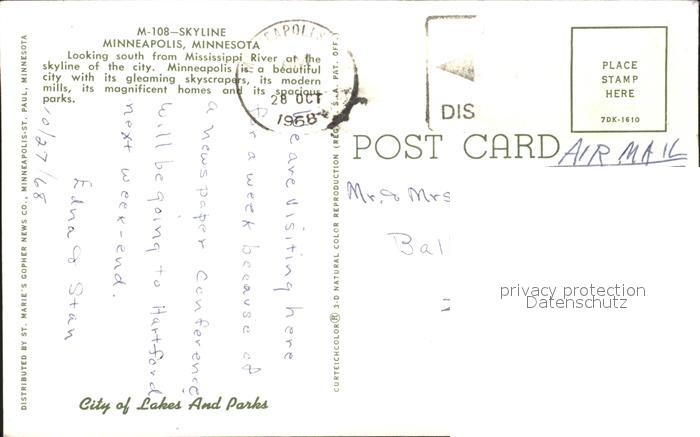 M-108—SKYLINE
MINNEAPOLIS, MINNESOTA
Looking south from Mississippi River at the
skyline of the city. Minneapolis is a beautiful
city with its gleaming skyscrapers, its modern
mills, its magnificent homes and its spacious
parks.
DISTRIBUTED BY ST. MARIE'S GOPHER NEWS CO., MINNEAPOLIS-ST. PAUL, MINNESOTA
We are visiting here
for a week because of
a newspaper Conference
Will be going to Hartford
next week-end.
Edna & Stan
10/27/68
City of Lakes And Parks
CURTEICHCOLOR® 3-D NATURAL COLOR REPRODUCTION (REG. U.S.A. PAT. OFF.)
28 OCT
1968
DIS
PLACE
STAMP
HERE
7DK-1610
POST CARD
AIR MAIL
Mr. & Mrs
Bal
privacy protection
Datenschutz